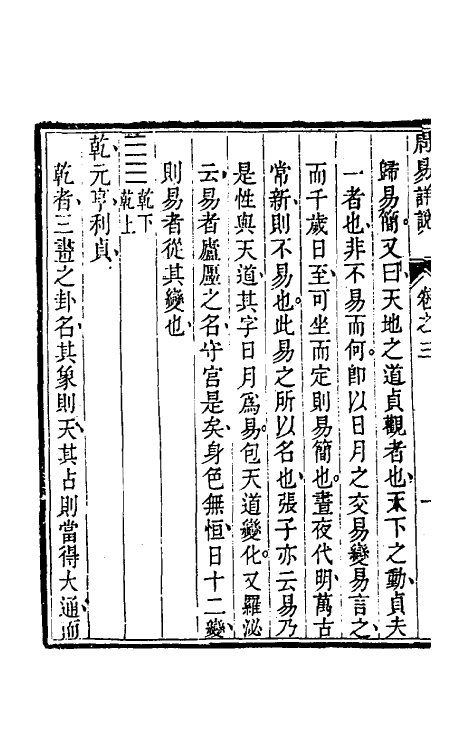 周易詳說 卷之三 一
歸易簡又曰天地之道貞觀者也天下之動貞夫
一者也非不易而何卽以日月之交易變易言之
而千歲日至可坐而定則易簡也晝夜代明萬古
常新則不易也此易之所以名也張子亦云易乃
是性與天道其字日月爲易包天道變化又羅泌
云易者廬𧔥之名守宮是矣身色無恒日十二變
則易者從其變也
乾下
乾上
乾元亨利貞
乾者三畫之卦名其象則天其占則當得大通而